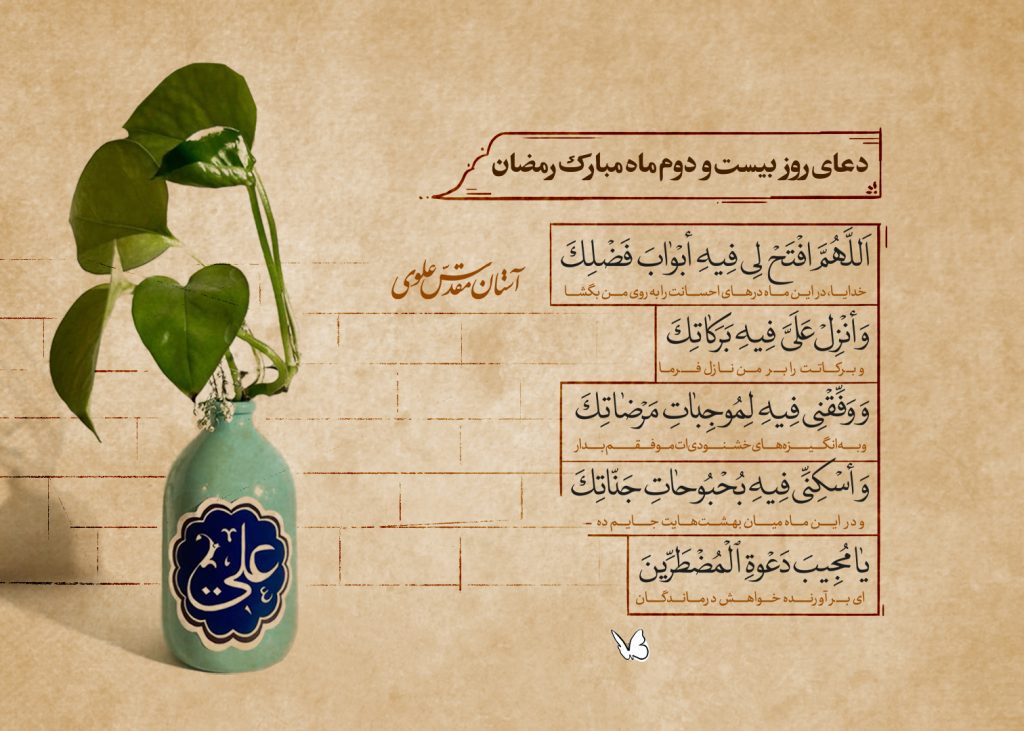 دعای روز بیست و دوم ماه مبارک رمضان
اَللَّهُمَّ افْتَحْ لِی فِیهِ أَبْوٰابَ فَضْلِكَ
خدایا، در این ماه درهای احسانت را به روی من بگشا
وَ أَنْزِلْ عَلَیَّ فِیهِ بَرَکٰاتِكَ
و برکاتت را بر من نازل فرما
وَ وَفِّقْنِی فِیهِ لِمُوجِبٰاتِ مَرْضٰاتِكَ
و به انگیزه‌های خشنودی‌ات موفقم بدار
وَ أَسْکِنِّی فِیهِ بُحْبُوحٰاتِ جَنّٰاتِكَ
و در این ماه میان بهشت‌هایت جایم ده
یٰا مُجِیبَ دَعْوَةِ ٱلْمُضْطَرِّینَ
ای برآورنده خواهش درماندگان
آستان مقدّس علوی
علی